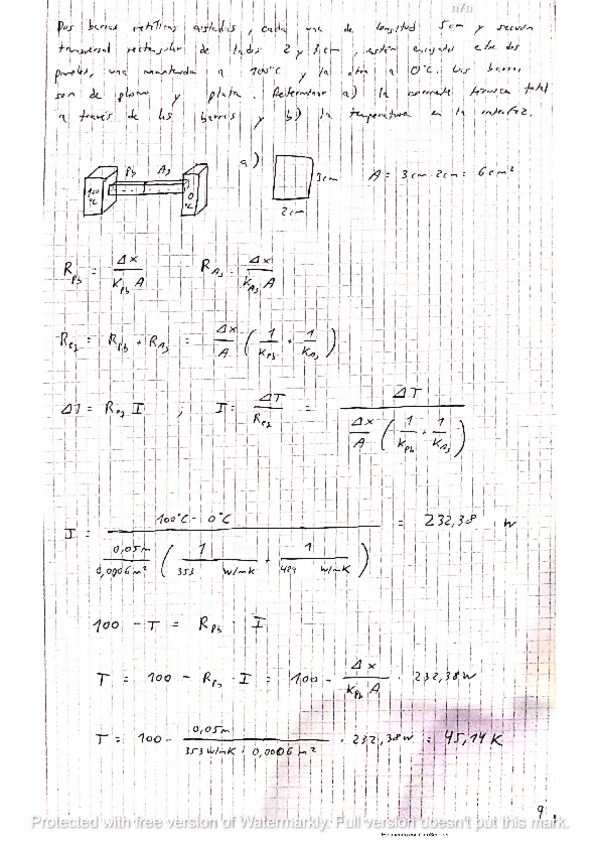 n/n
Dos barras metálicas aisladas, cada una de longitud 5cm y sección
transversal rectangular de lados 2 y 3cm, están encajadas entre dos
paredes, una mantenida a 100°C y la otra a 0°C. Las barras
son de plomo y plata. Determinar a) la corriente térmica total
a través de las barras y b) la temperatura en la interfaz.
Pb Ag a) 3cm A = 3cm · 2cm = 6cm²
100 °C 0 °C
2cm
R_Pb = Δx / (K_Pb A) R_Ag = Δx / (K_Ag A)
R_eq = R_Pb + R_Ag = Δx/A (1/K_Pb + 1/K_Ag)
ΔT = R_eq I ; I = ΔT/R_eq = ΔT / (Δx/A (1/K_Pb + 1/K_Ag))
I = (100°C - 0°C) / (0,05m/0,0006m² (1/(353 W/mK) + 1/(429 W/mK))) = 232,38 W
100 - T = R_Pb · I
T = 100 - R_Pb · I = 100 - Δx/(K_Pb A) · 232,38W
T = 100 - 0,05m/(353W/mK · 0,0006m²) · 232,38W = 45,14 K
9.
Protected with free version of Watermarkly. Full version doesn't put this mark.